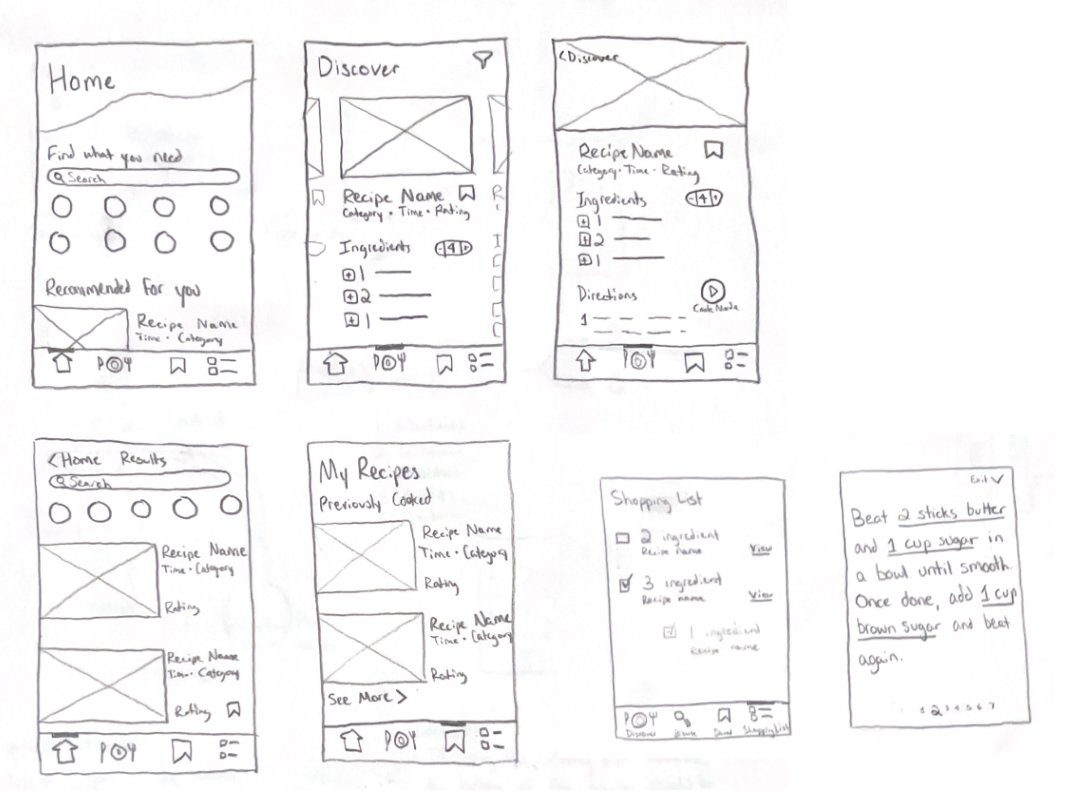 Home
Find what you need
Search
Recommended for you
Recipe Name
Time · Category
Discover
Recipe Name
Category · Time · Rating
Ingredients
-4+
+ 1
+ 2
+ 1
R
I
<Discover
Recipe Name
Category · Time · Rating
Ingredients
-4+
+ 1
+ 2
+ 1
Directions
Cook Mode
1
<Home Results
Search
Recipe Name
Time · Category
Rating
Recipe Name
Time · Category
Rating
My Recipes
Previously Cooked
Recipe Name
Time · Category
Rating
Recipe Name
Time · Category
Rating
See More >
Shopping List
2 ingredient
Recipe name
View
3 ingredient
Recipe name
View
1 ingredient
Recipe name
Discover
Saved
Shopping List
Exit
Beat 2 sticks butter
and 1 cup sugar in
a bowl until smooth.
Once done, add 1 cup
brown sugar and beat
again.
1 2 3 4 5 6 7